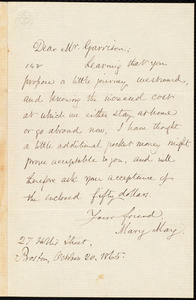 Dear Mr. Garrison,
Learning that you
propose a little journey westward,
and knowing the increased cost
at which we either stay at home
or go abroad now, I have thought
a little additional pocket money might
prove acceptable to you, and will
therefore ask your acceptance of
the enclosed fifty dollars.
Your friend
Mary May.
27 Hollis Street,
Boston, October 20,